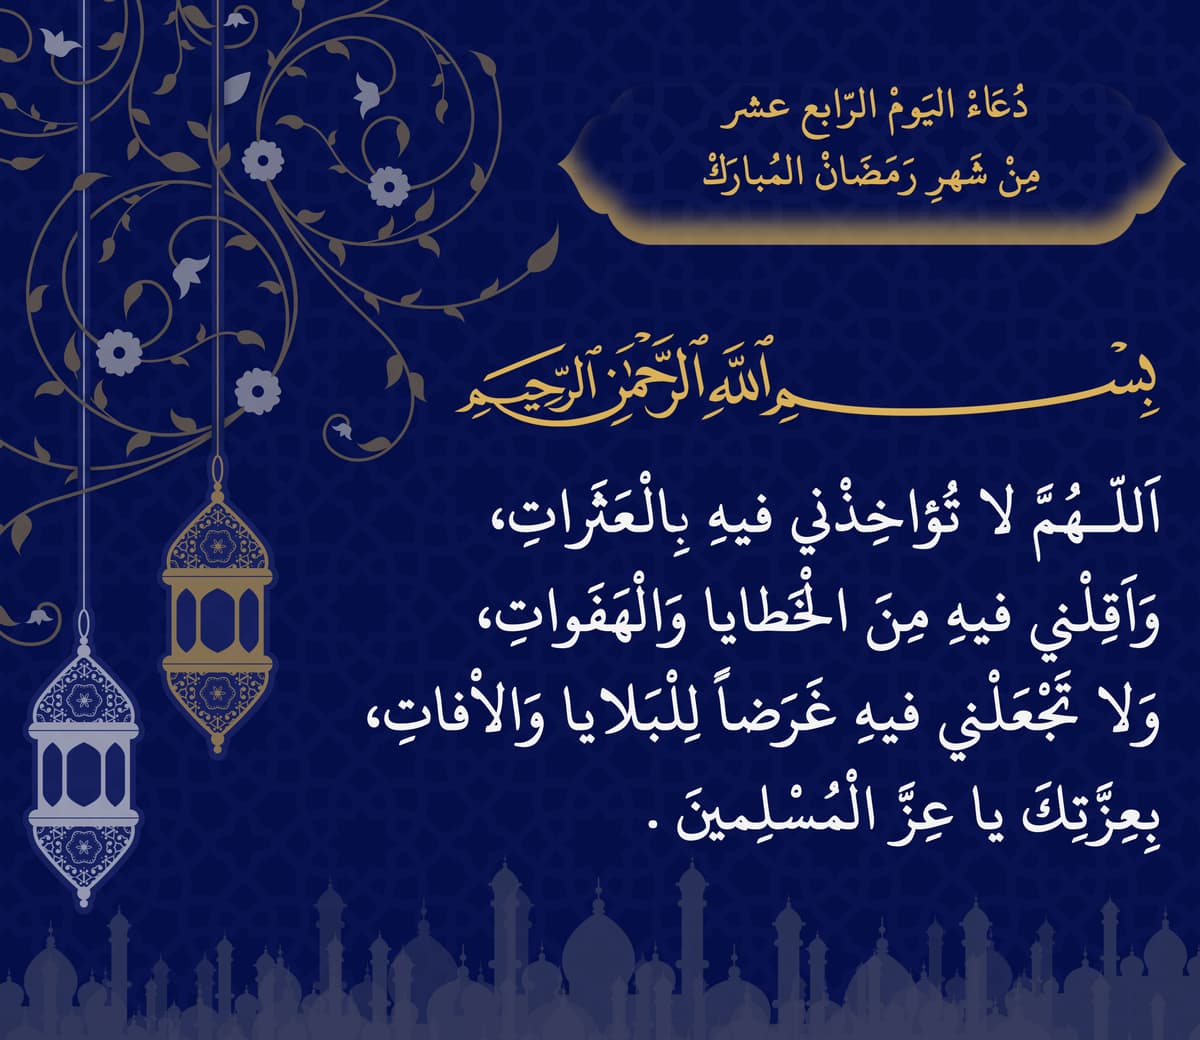 دُعَاءْ اليَومْ الرّابع عشر
مِنْ شَهرِ رَمَضَانْ المُبارَكْ
بِسْمِ اللَّهِ الرَّحْمَٰنِ الرَّحِيمِ
اَللّـهُمَّ لا تُؤاخِذْني فيهِ بِالْعَثَراتِ،
وَاَقِلْني فيهِ مِنَ الْخَطايا وَالْهَفَواتِ،
وَلا تَجْعَلْني فيهِ غَرَضاً لِلْبَلايا وَالاْفاتِ،
بِعِزَّتِكَ يا عِزَّ الْمُسْلِمينَ .